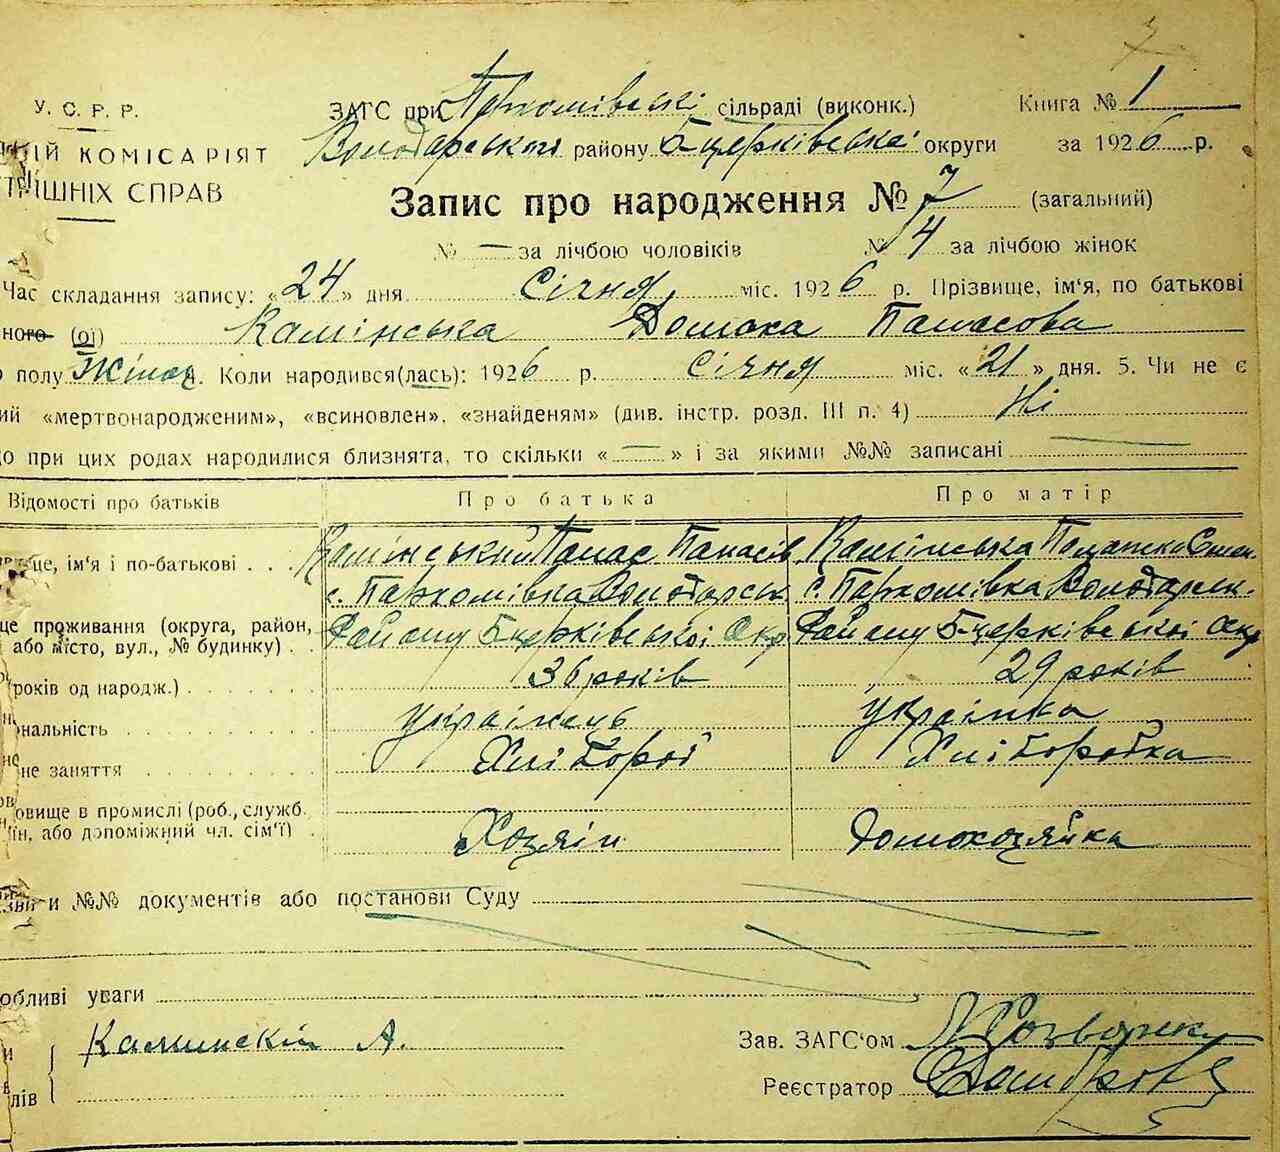 У. С. Р. Р. ЗАГС при Пархомівські сільраді (виконк.) Книга № 1
Володарського району Б-церківської округи за 1926 р.
КОМІСАРІЯТ
СПРАВ
Запис про народження № 7 (загальний)
№ — за лічбою чоловіків № 4 за лічбою жінок
Час складання запису: «24» дня Січня міс. 1926 р. Прізвище, ім'я, по батькові
ного (ої) Камінська Домока Панасова
полу Жіноч. 4. Коли народився(лась): 1926 р. Січня міс. «21» дня. 5. Чи не є
ий «мертвонародженим», «всиновлен», «знайденям» (див. інстр. розд. III п. 4) Ні
о при цих родах народилися близнята, то скільки «—» і за якими №№ записані —
Відомості про батьків Про батька Про матір
це, ім'я і по-батькові . . . Камінський Панас Панасів Камінська Степ.
с. Пархомівка Володарськ с. Пархомівка Володарськ.
це проживання (округа, район, Району Б-церківської Окр Району Б-церківської Окр
або місто, вул., № будинку) . .
років од народж.) 36 років 29 років
нальність українець українка
не заняття Хлібороб Хліборобка
овище в промислі (роб., служб.
ін, або допоміжний чл. сім'ї) . Хозяін Домохозяйка
и №№ документів або постанови Суду
обливі уваги
Каминский А. Зав. ЗАГС'ом
лів Реєстратор